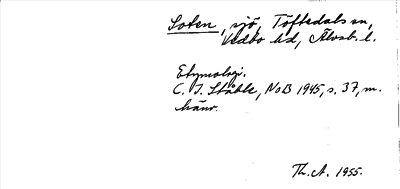 Soten, sjö, Töftedals sn,
Vedbo hd, Älvsb. l.
Etymologi.
C. I. Ståhle, NoB 1945, s. 37, m.
hänv.
Th. A. 1955.